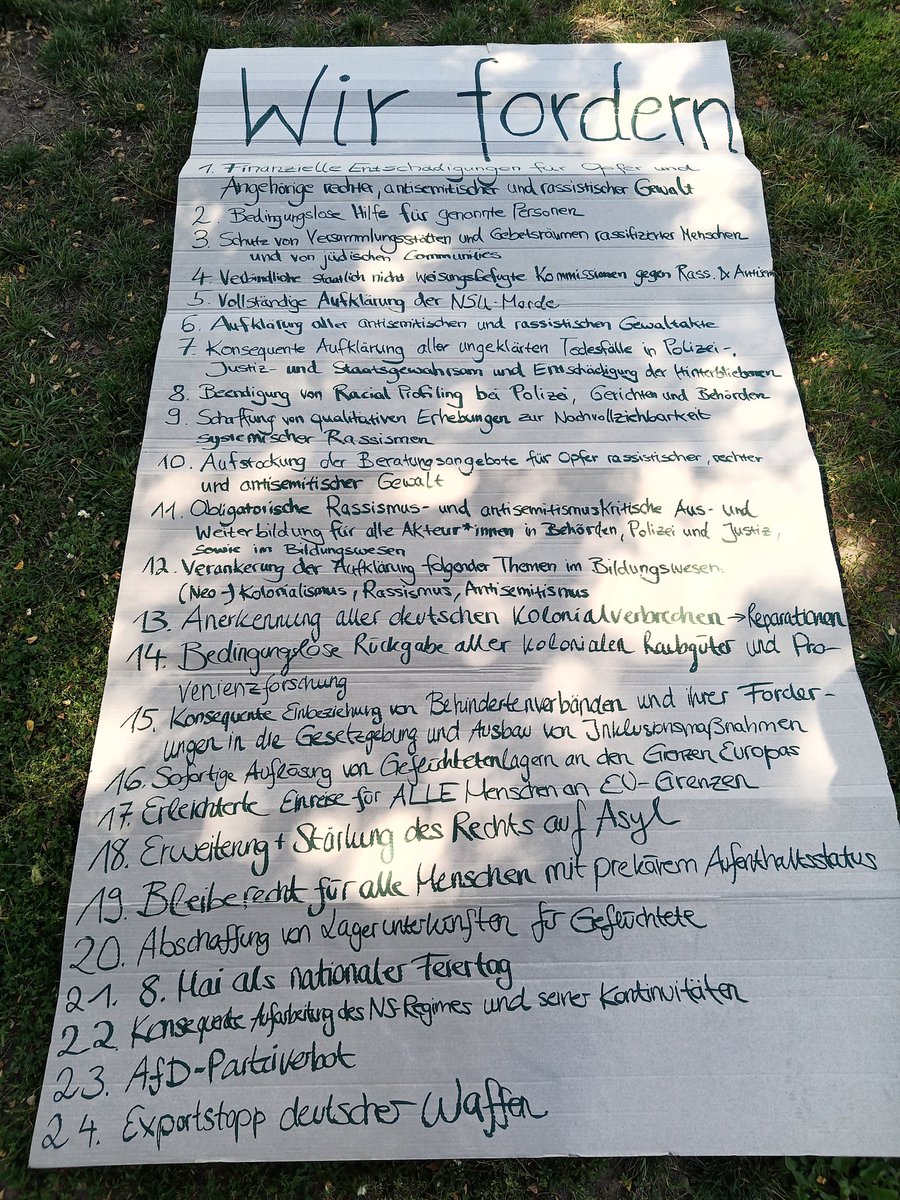 Wir fordern
1. Finanzielle Entschädigungen für Opfer und
Angehörige rechter, antisemitischer und rassistischer Gewalt
2. Bedingungslose Hilfe für genannte Personen
3. Schutz von Versammlungsstätten und Gebetsräumen rassifizierter Menschen
und von jüdischen Communities
4. Verbindliche staatlich nicht weisungsbefugte Kommissionen gegen Rass. & Antisem
5. Vollständige Aufklärung der NSU-Morde
6. Aufklärung aller antisemitischen und rassistischen Gewaltakte
7. Konsequente Aufklärung aller ungeklärten Todesfälle in Polizei-,
Justiz- und Staatsgewahrsam und Entschädigung der Hinterbliebenen
8. Beendigung von Racial Profiling bei Polizei, Gerichten und Behörden
9. Schaffung von qualitativen Erhebungen zur Nachvollziehbarkeit
systemischer Rassismen
10. Aufstockung der Beratungsangebote für Opfer rassistischer, rechter
und antisemitischer Gewalt
11. Obligatorische Rassismus- und antisemitismuskritische Aus- und
Weiterbildung für alle Akteur*innen in Behörden, Polizei und Justiz,
sowie im Bildungswesen
12. Verankerung der Aufklärung folgender Themen im Bildungswesen:
(Neo-) Kolonialismus, Rassismus, Antisemitismus
13. Anerkennung aller deutschen Kolonialverbrechen → Reparationen
14. Bedingungslose Rückgabe aller kolonialen Raubgüter und Pro-
venienzforschung
15. Konsequente Einbeziehung von Behindertenverbänden und ihrer Forder-
ungen in die Gesetzgebung und Ausbau von Inklusionsmaßnahmen
16. Sofortige Auflösung von Geflüchtetenlagern an den Grenzen Europas
17. Erleichterte Einreise für ALLE Menschen an EU-Grenzen
18. Erweiterung + Stärkung des Rechts auf Asyl
19. Bleiberecht für alle Menschen mit prekärem Aufenthaltsstatus
20. Abschaffung von Lagerunterkünften für Geflüchtete
21. 8. Mai als nationaler Feiertag
22. Konsequente Aufarbeitung des NS-Regimes und seiner Kontinuitäten
23. AfD-Parteiverbot
24. Exportstopp deutscher Waffen